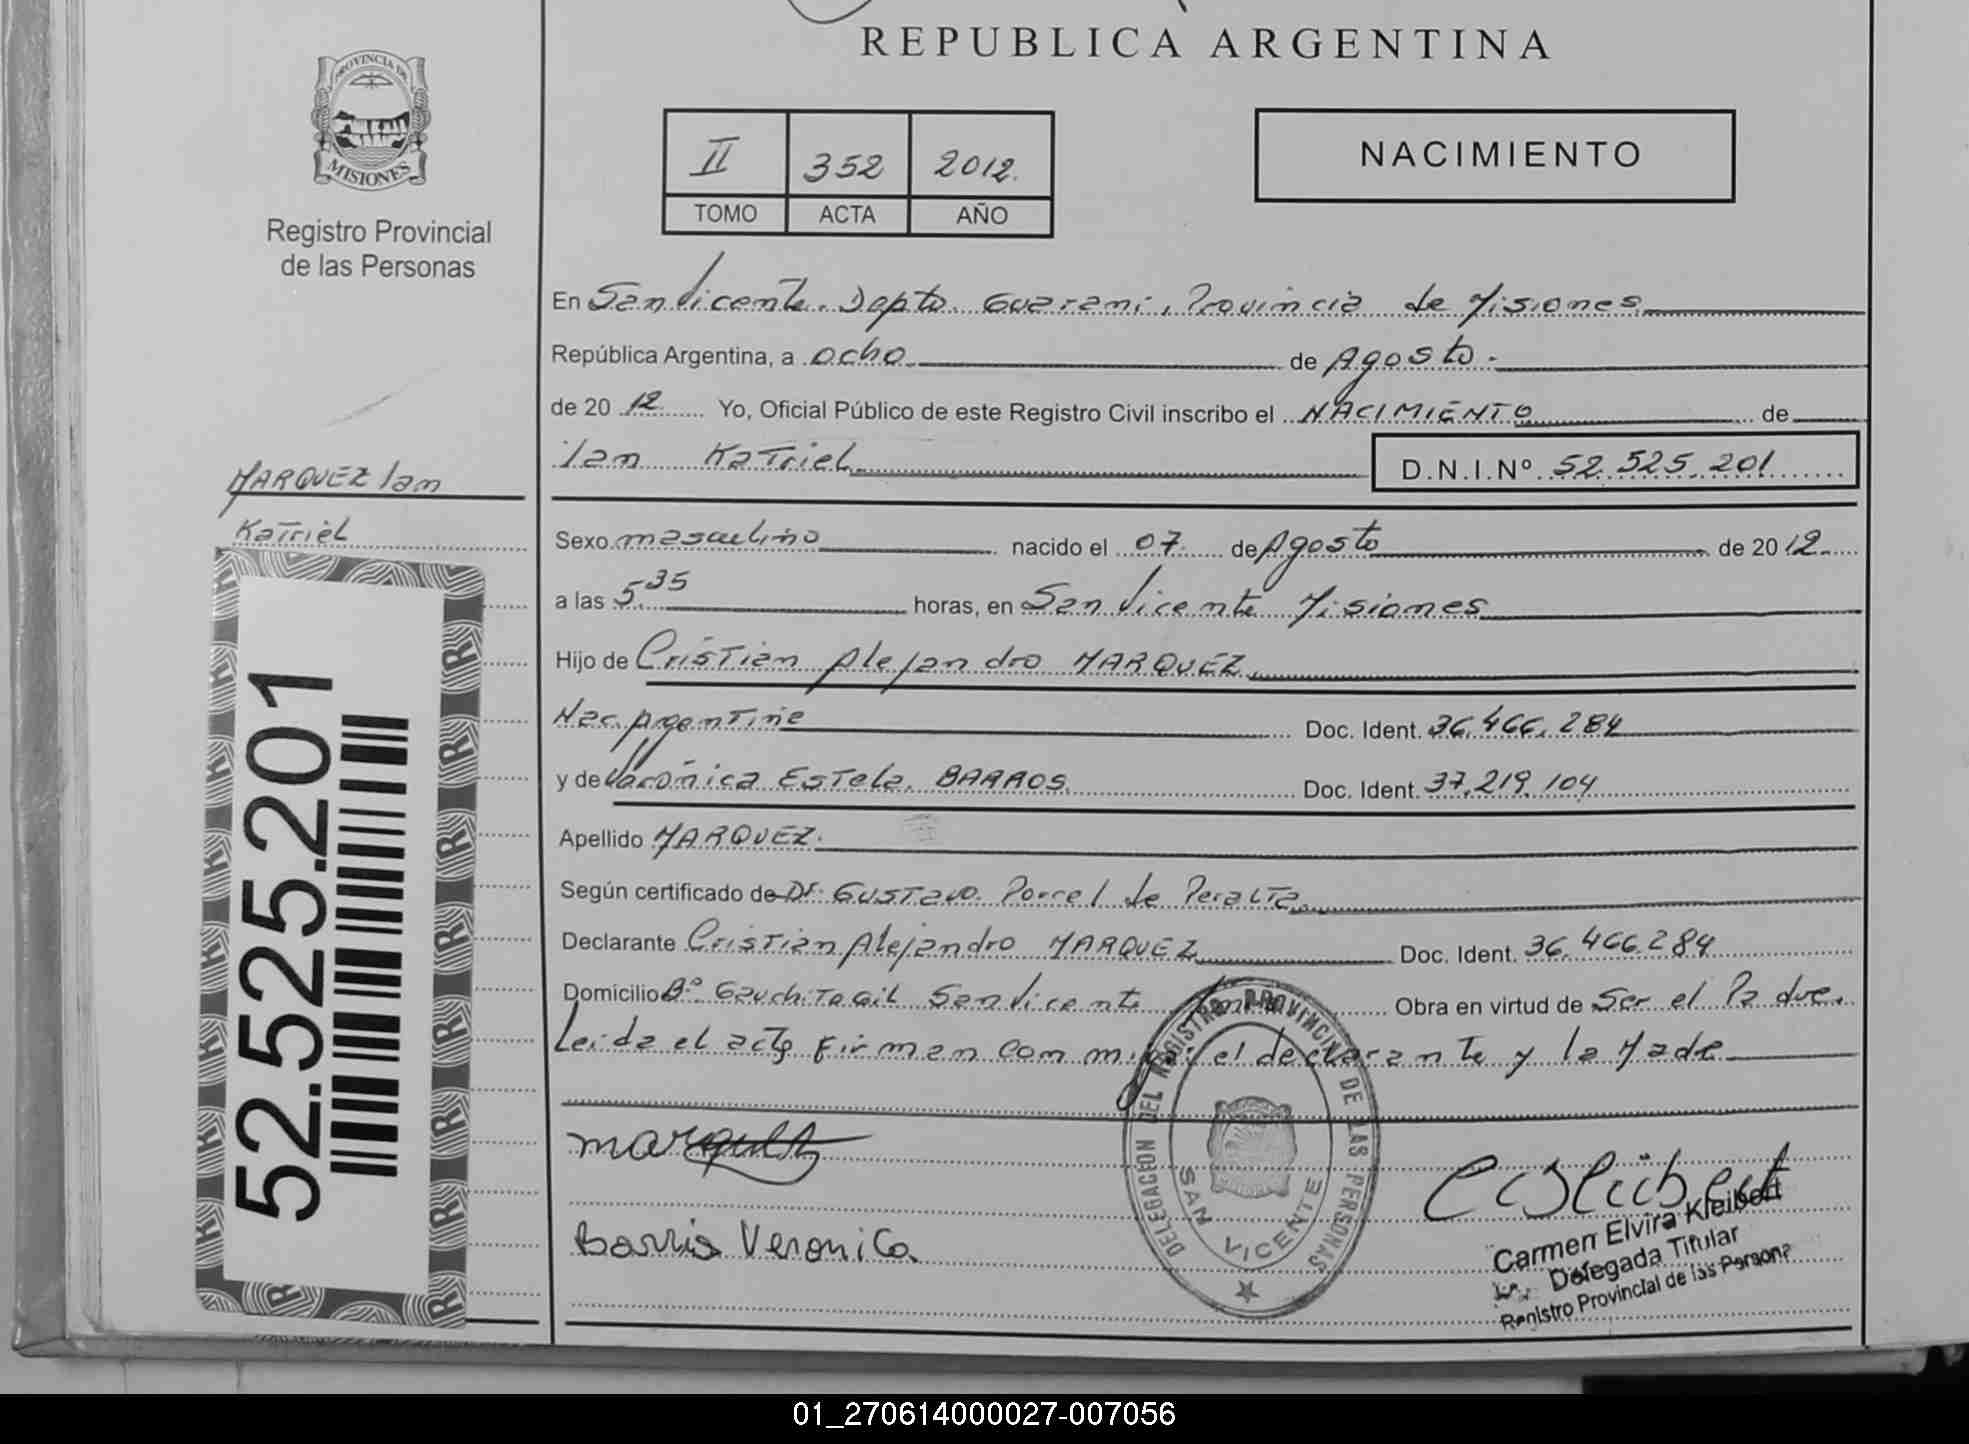 REPUBLICA ARGENTINA
PROVINCIA DE
MISIONES
Registro Provincial
de las Personas
II 352 2012.
TOMO ACTA AÑO
NACIMIENTO
En San Vicente. Dpto. Guarani, Provincia de Misiones
República Argentina, a ocho de Agosto.
de 20 12 Yo, Oficial Público de este Registro Civil inscribo el NACIMIENTO de
Ian Katriel D.N.I.Nº 52.525.201
MARQUEZ Ian
Katriel
Sexo masculino nacido el 07 de Agosto de 2012
a las 5.35 horas, en San Vicente Misiones
Hijo de Cristian Alejandro MARQUEZ
Nac. Argentine Doc. Ident. 36.466.284
y de Verónica Estela BARROS Doc. Ident. 37.219.104
Apellido MARQUEZ.
Según certificado de Dr. Gustavo Porcel de Peralta
Declarante Cristian Alejandro MARQUEZ Doc. Ident. 36.466.284
Domicilio Bº Gauchito Gil San Vicente Obra en virtud de Ser el Padre.
Leida el acta Firman con migo el declarante y la Made
52.525.201
Marquez
Veronica
DELEGACION DEL REGISTRO PROVINCIAL DE LAS PERSONAS
SAN VICENTE
Carmen Elvira Kleibert
Delegada Titular
Registro Provincial de las Person
01_270614000027-007056